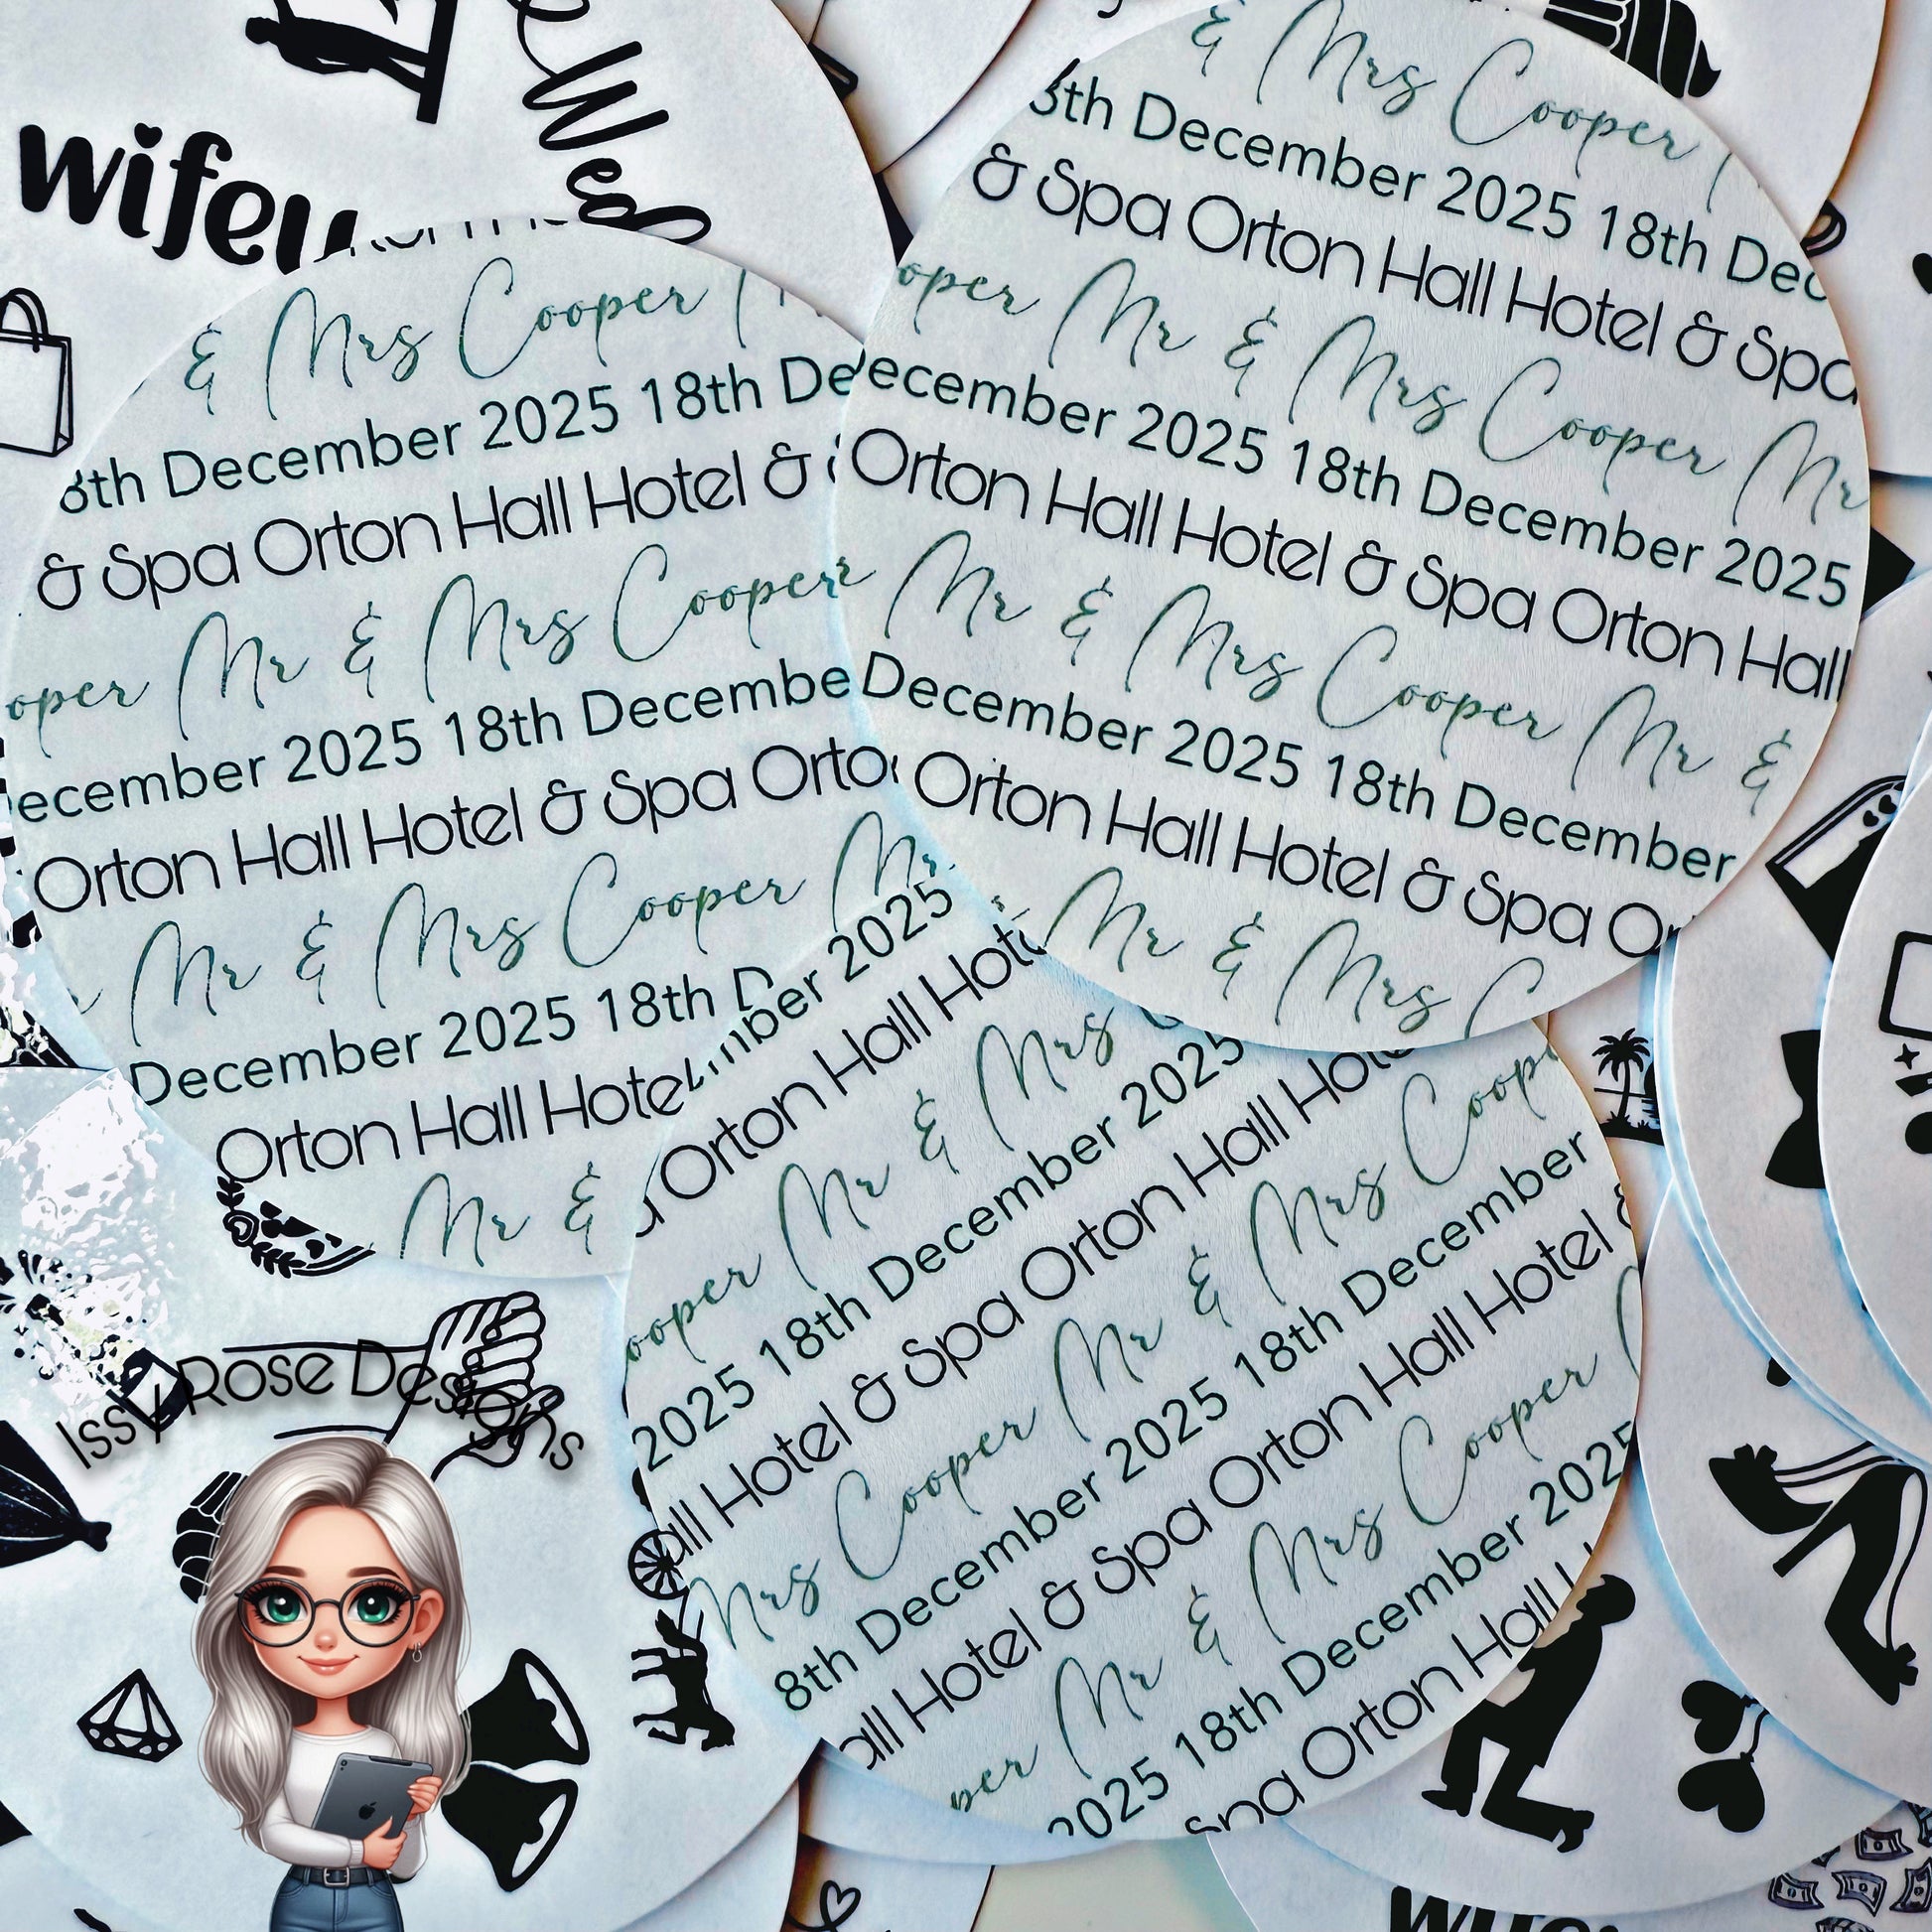 wifey
We
& Mrs Cooper
8th December 2025 18th De
& Spa Orton Hall Hotel &
oper Mr & Mrs Cooper
ecember 2025 18th Decembe
Orton Hall Hotel & Spa Orto
Mr & Mrs Cooper Mr
December 2025 18th D
Orton Hall Hote
Mr &
& Mrs Cooper
8th December 2025 18th Dec
& Spa Orton Hall Hotel & Spa
oper Mr & Mrs Cooper Mr
ecember 2025 18th December 2025
Orton Hall Hotel & Spa Orton Hall
Mr & Mrs Cooper Mr &
December 2025 18th December
Orton Hall Hotel & Spa Or
Mr & Mrs C
mber 2025
a Orton Hall Hote
ooper Mr & Mrs
2025 18th December 2025
all Hotel & Spa Orton Hall Hote
Mrs Cooper Mr & Mrs Coope
8th December 2025 18th December
all Hotel & Spa Orton Hall Hotel &
per Mr & Mrs Cooper
2025 18th December 2025
Spa Orton Hall
Issy Rose Designs